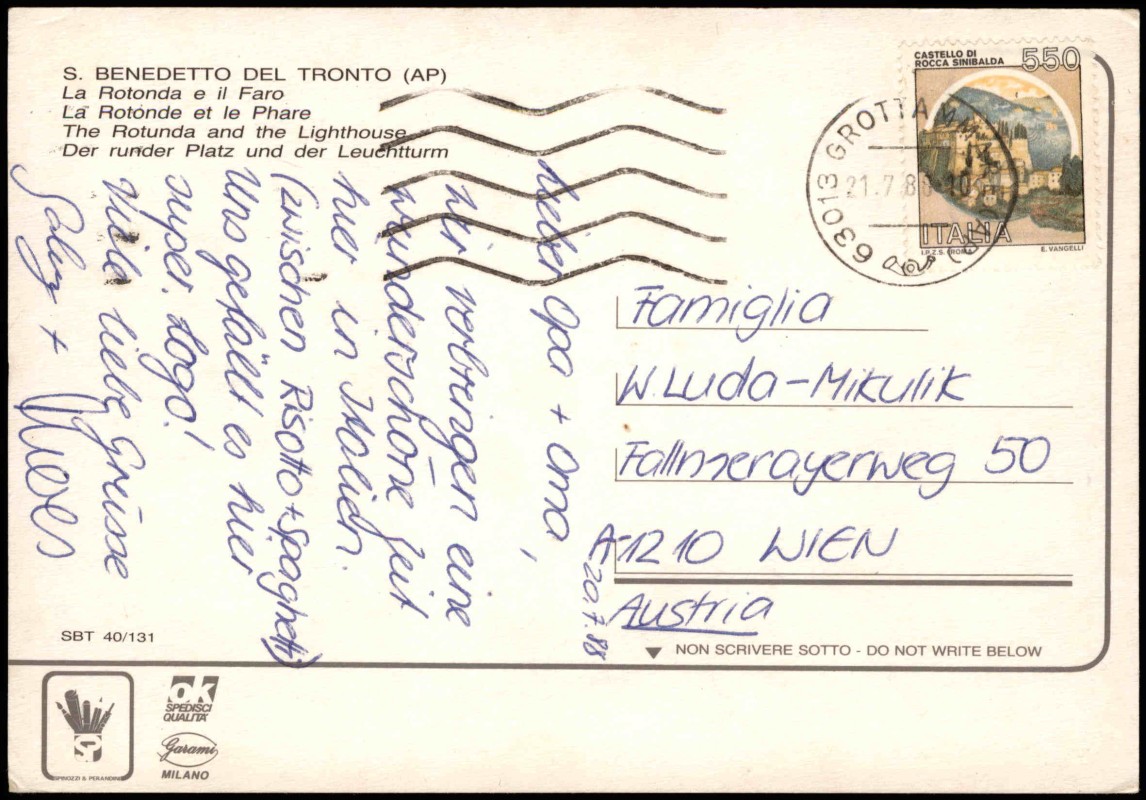 S. BENEDETTO DEL TRONTO (AP)
La Rotonda e il Faro
La Rotonde et le Phare
The Rotunda and the Lighthouse
Der runder Platz und der Leuchtturm
CASTELLO DI
ROCCA SINIBALDA
550
ITALIA
I.P.Z.S. ROMA
E. VANGELLI
63013 GROTTAMMARE
21.7.8
20.7.88
Lieber Opa + Oma,
wir verbringen eine
wunderschöne Zeit
hier in Italien.
(zwischen Risotto + Spaghetti)
Uns gefällt es hier
super. Logo!
Viele liebe Grüsse
Gaby +
Famiglia
W. Luda-Mikulik
Fallmerayerweg 50
A-1210 WIEN
Austria
SBT 40/131
NON SCRIVERE SOTTO - DO NOT WRITE BELOW
SPINOZZI & PERANDINI
ok
SPEDISCI
QUALITÀ
Garami
MILANO